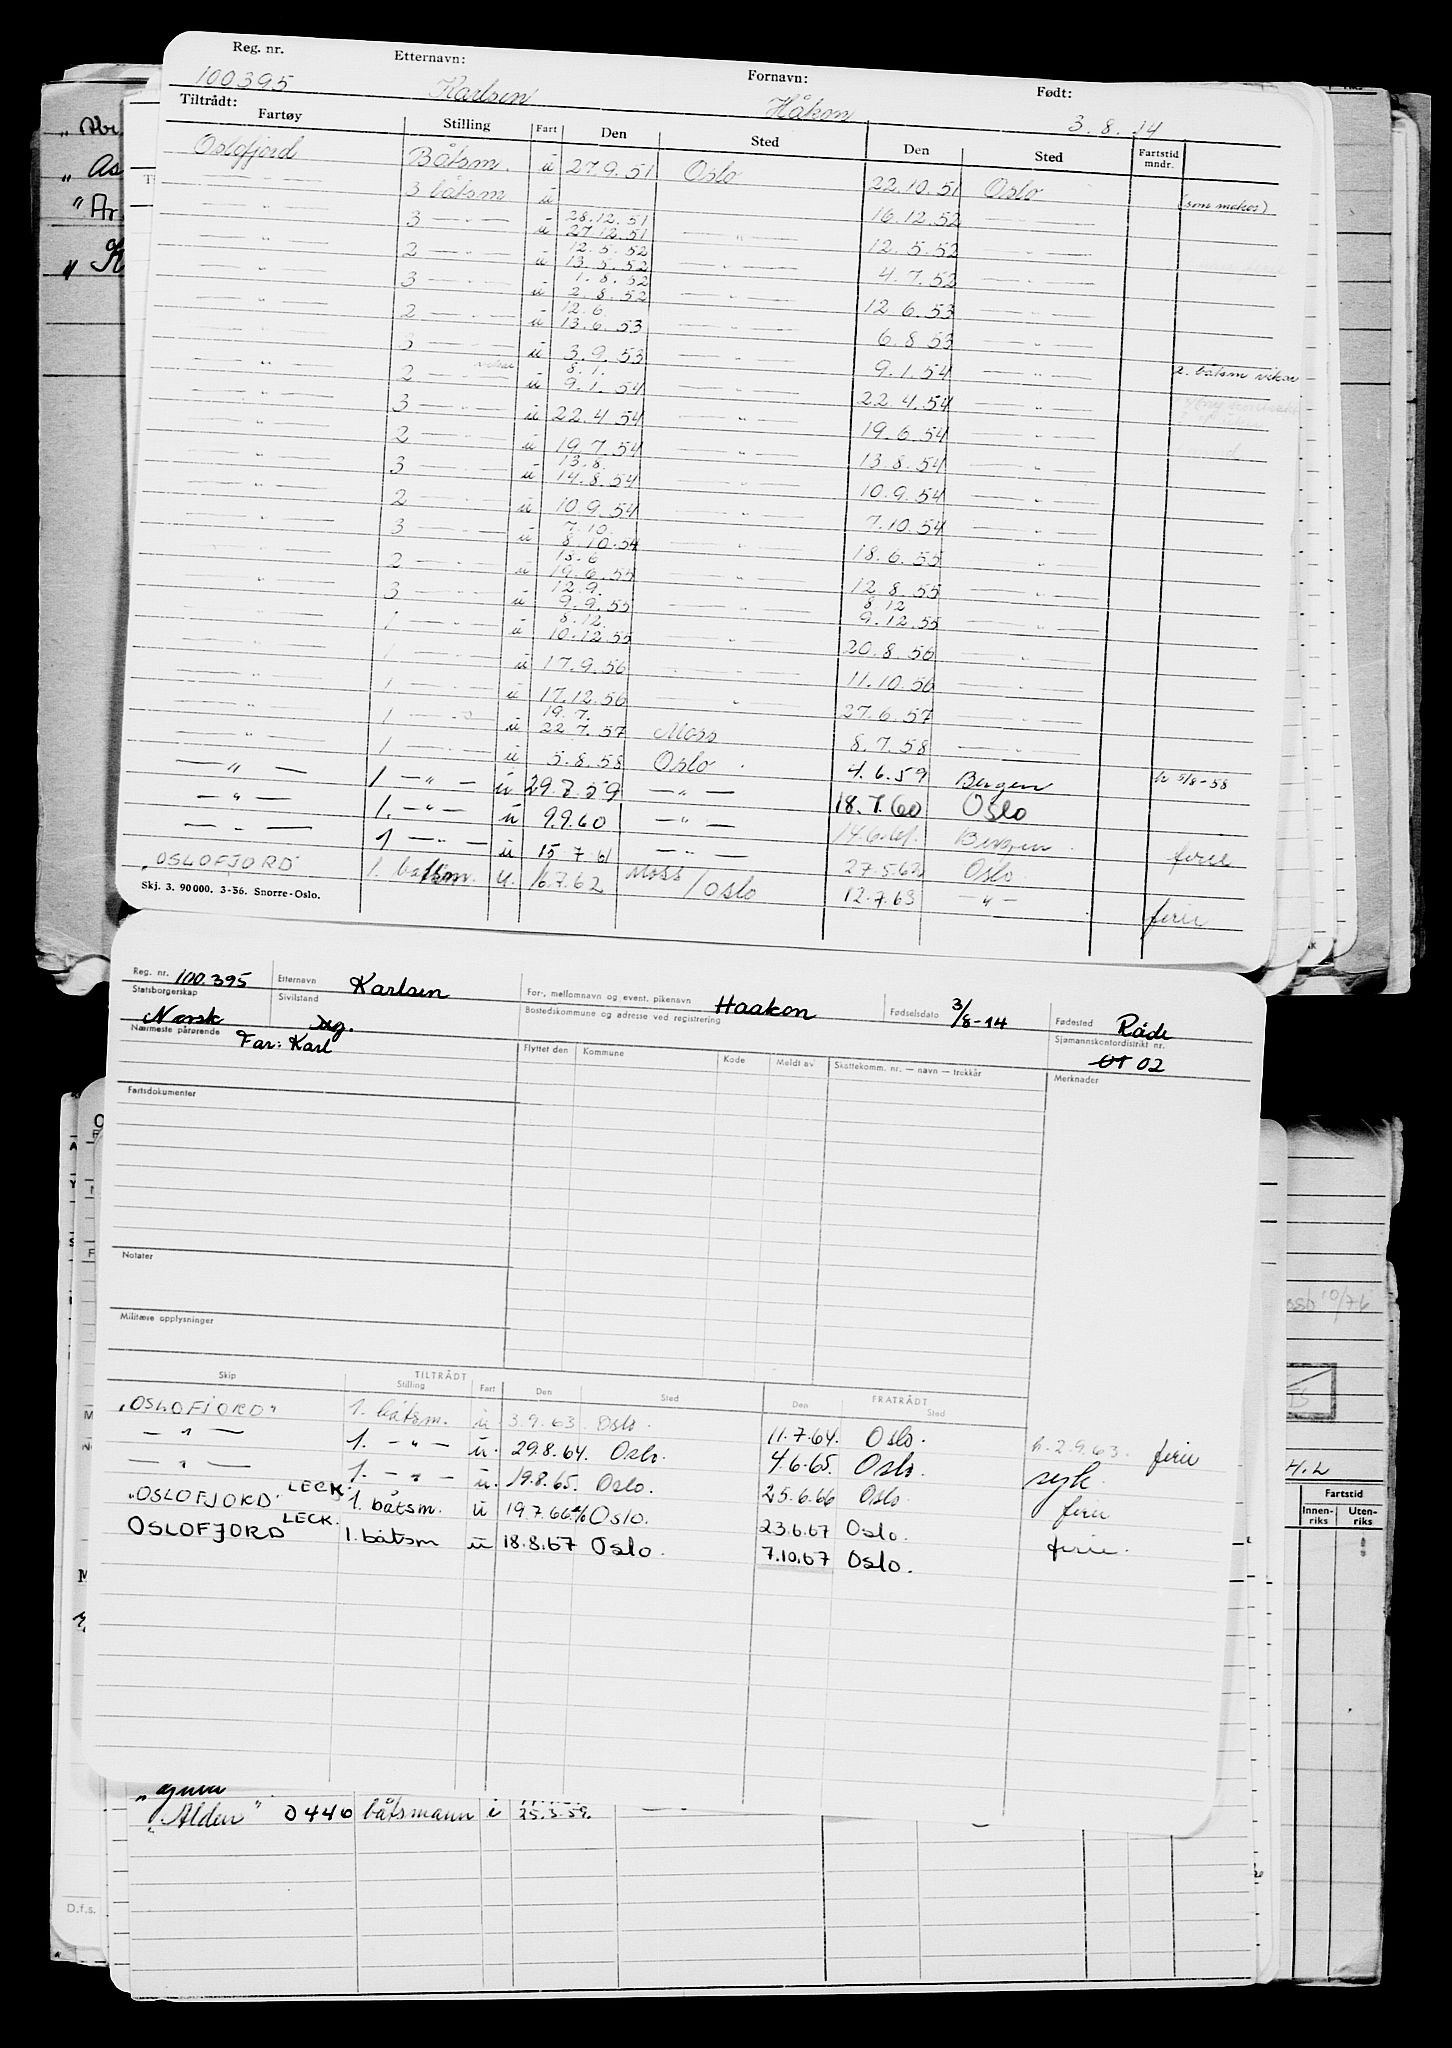 Reg. nr. Etternavn: Fornavn: Født:
100395 Karlsen Håkon 3.8.14
Tiltrådt:
Fartøy Stilling Fart Den Sted Den Sted Fartstid mndr.
Oslofjord Båtsm. u 27.9.51 Oslo 22.10.51 Oslo
— " — 3 båtsm u 28.12.51 16.12.52 (som makes)
— " — 3 — " — u 27.12.51 — " — 12.5.52 — " —
12.5.52
— " — 2 — " — u 13.5.52 — " — 4.7.52 — " —
1.8.52
— " — 3 — " — u 2.8.52 — " — 12.6.53 — " —
12.6.
— " — 2 — " — u 13.6.53 — " — 6.8.53 — " —
— " — 3 — " — u 3.9.53 — " — 9.1.54 — " — 2. båtsm vikar
8.1.
— " — 2 — " — vikar u 9.1.54 — " — 22.4.54 — " —
— " — 3 — " — u 22.4.54 — " — 19.6.54 — " —
— " — 2 — " — u 19.7.54 — " — 13.8.54 — " —
13.8.
— " — 3 — " — u 14.8.54 — " — 10.9.54 — " —
— " — 2 — " — u 10.9.54 — " — 7.10.54 — " —
7.10.
— " — 3 — " — u 8.10.54 — " — 18.6.55 — " —
18.6
— " — 2 — " — u 19.6.55 — " — 12.8.55 — " —
12.9. 8.12
— " — 3 — " — u 9.9.55 — " — 9.12.55 — " —
8.12.
— " — 1 — " — u 10.12.55 — " — 20.8.56 — " —
— " — 1 — " — u 17.9.56 — " — 11.10.56 — " —
— " — 1 — " — u 17.12.56 — " — 27.6.57 — " —
19.7.
— " — 1 — " — u 22.7.57 Moss 8.7.58 — " —
— " — 1 — " — u 5.8.58 Oslo. 4.6.59 Bergen h 5/8-58
— " — 1 — " — u 29.8.59 — " — 18.7.60 Oslo
— " — 1. — " — u 9.9.60 — " — 14.6.61. Bergen.
— " — 1 — " — u 15.7.61 — " — 27.5.62 Oslo. ferie
"OSLOFJORD" 1. båtsm. u. 16.7.62 Moss/Oslo 12.7.63 — " — ferie
Skj. 3. 90000. 3-56. Snorre-Oslo.
Reg. nr. 100.395 Etternavn Karlsen For-, mellomnavn og event. pikenavn Haakon Fødselsdato 3/8-14 Fødested Råde
Statsborgerskap Norsk Sivilstand Bostedskommune og adresse ved registrering Sjømannskontordistrikt nr. 01 02
Nærmeste pårørende Far: Karl Flyttet den Kommune Kode Meldt av Skattekomm. nr. — navn — trekkår Merknader
Fartsdokumenter
Notater
Militære opplysninger
TILTRÅDT FRATRÅDT
Skip Stilling Fart Den Sted Den Sted
"OSLOFJORD" 1. båtsm. u 3.9.63 Oslo. 11.7.64. Oslo. h. 2.9.63. ferie
— " — 1. — " — u. 29.8.64. Oslo. 4.6.65. Oslo. syk.
— " — 1. — " — u. 19.8.65. Oslo. 25.6.66 Oslo. ferie
"OSLOFJORD" LECK. 1. båtsm. u 19.7.66 Oslo. 23.6.67 Oslo. ferie.
OSLOFJORD LECK. 1. båtsm u 18.8.67 Oslo. 7.10.67 Oslo.
H.L
Fartstid
Innen-riks Uten-riks
"Alden" 0446 båtsmann i 25.3.59. — " —
D.f.s.